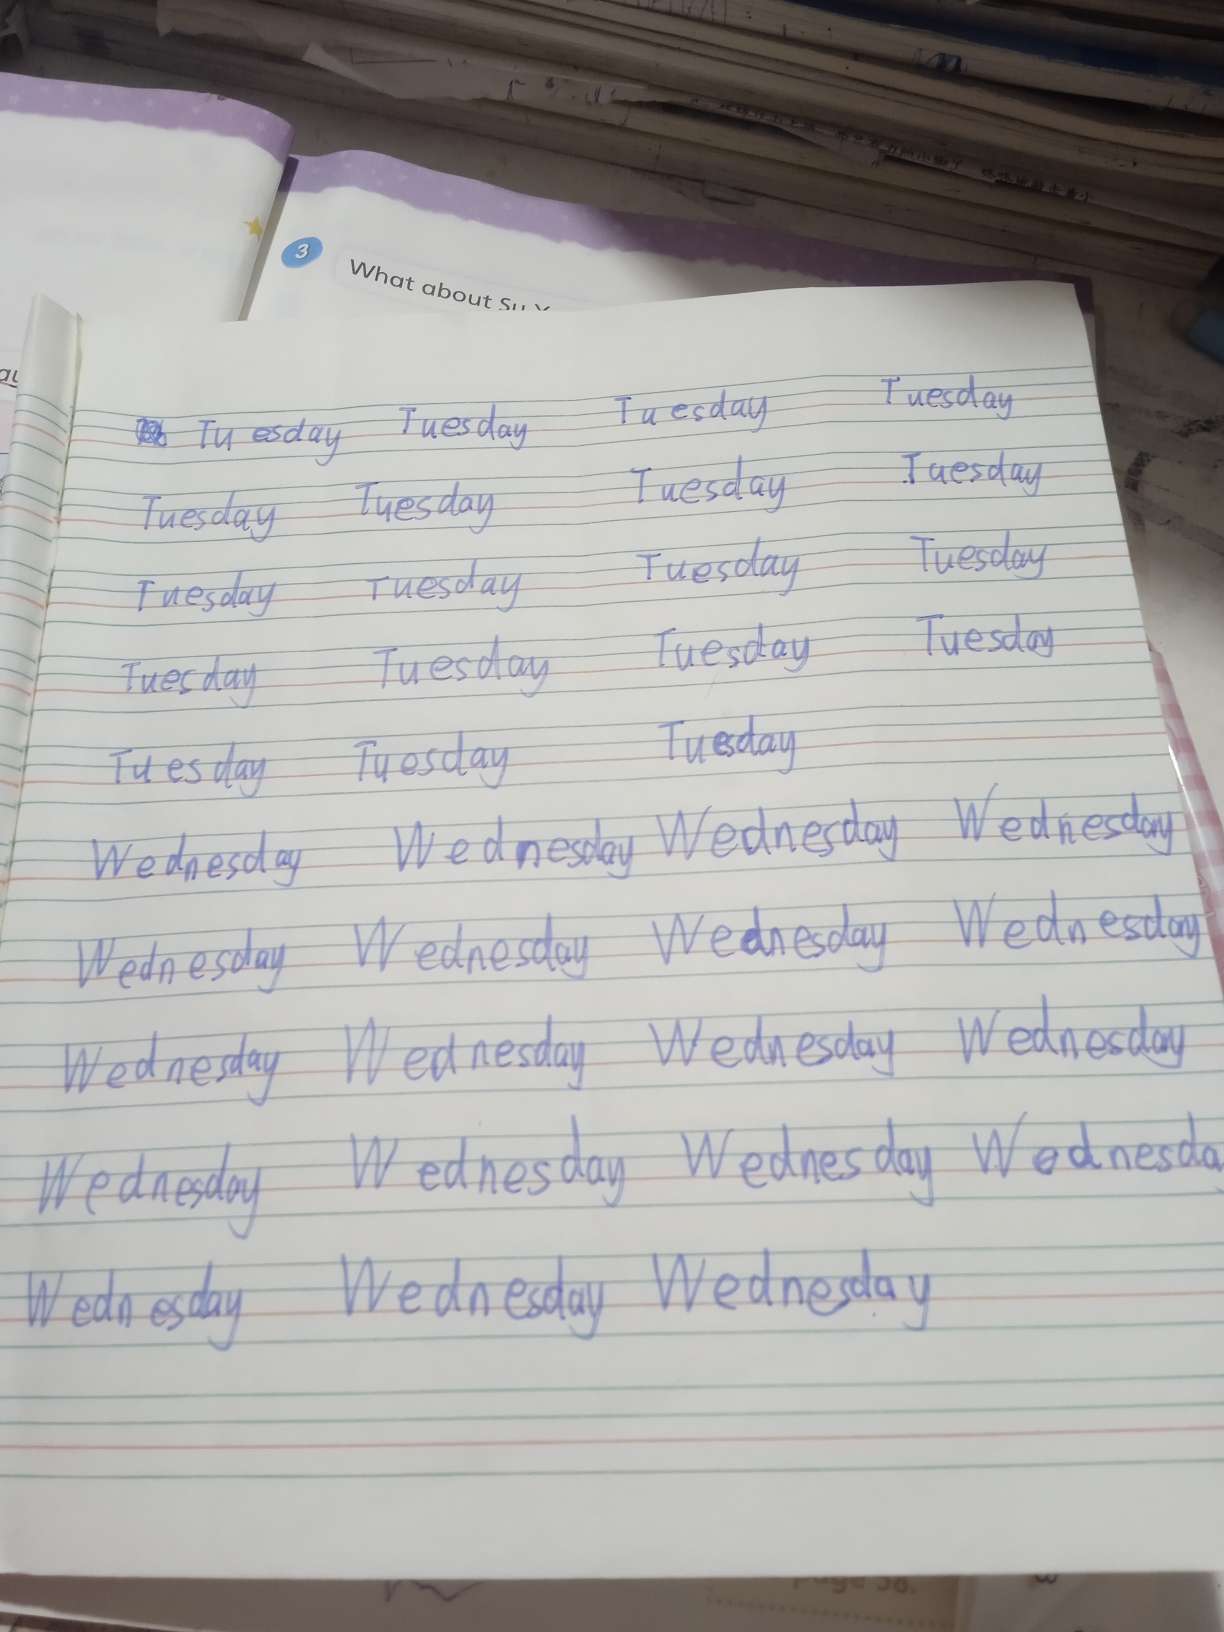 3 What about Su Y
Tuesday Tuesday Tuesday Tuesday
Tuesday Tuesday Tuesday Tuesday
Tuesday Tuesday Tuesday Tuesday
Tuesday Tuesday Tuesday Tuesday
Tuesday Tuesday Tuesday
Wednesday Wednesday Wednesday Wednesday
Wednesday Wednesday Wednesday Wednesday
Wednesday Wednesday Wednesday Wednesday
Wednesday Wednesday Wednesday Wednesda
Wednesday Wednesday Wednesday
page 38.